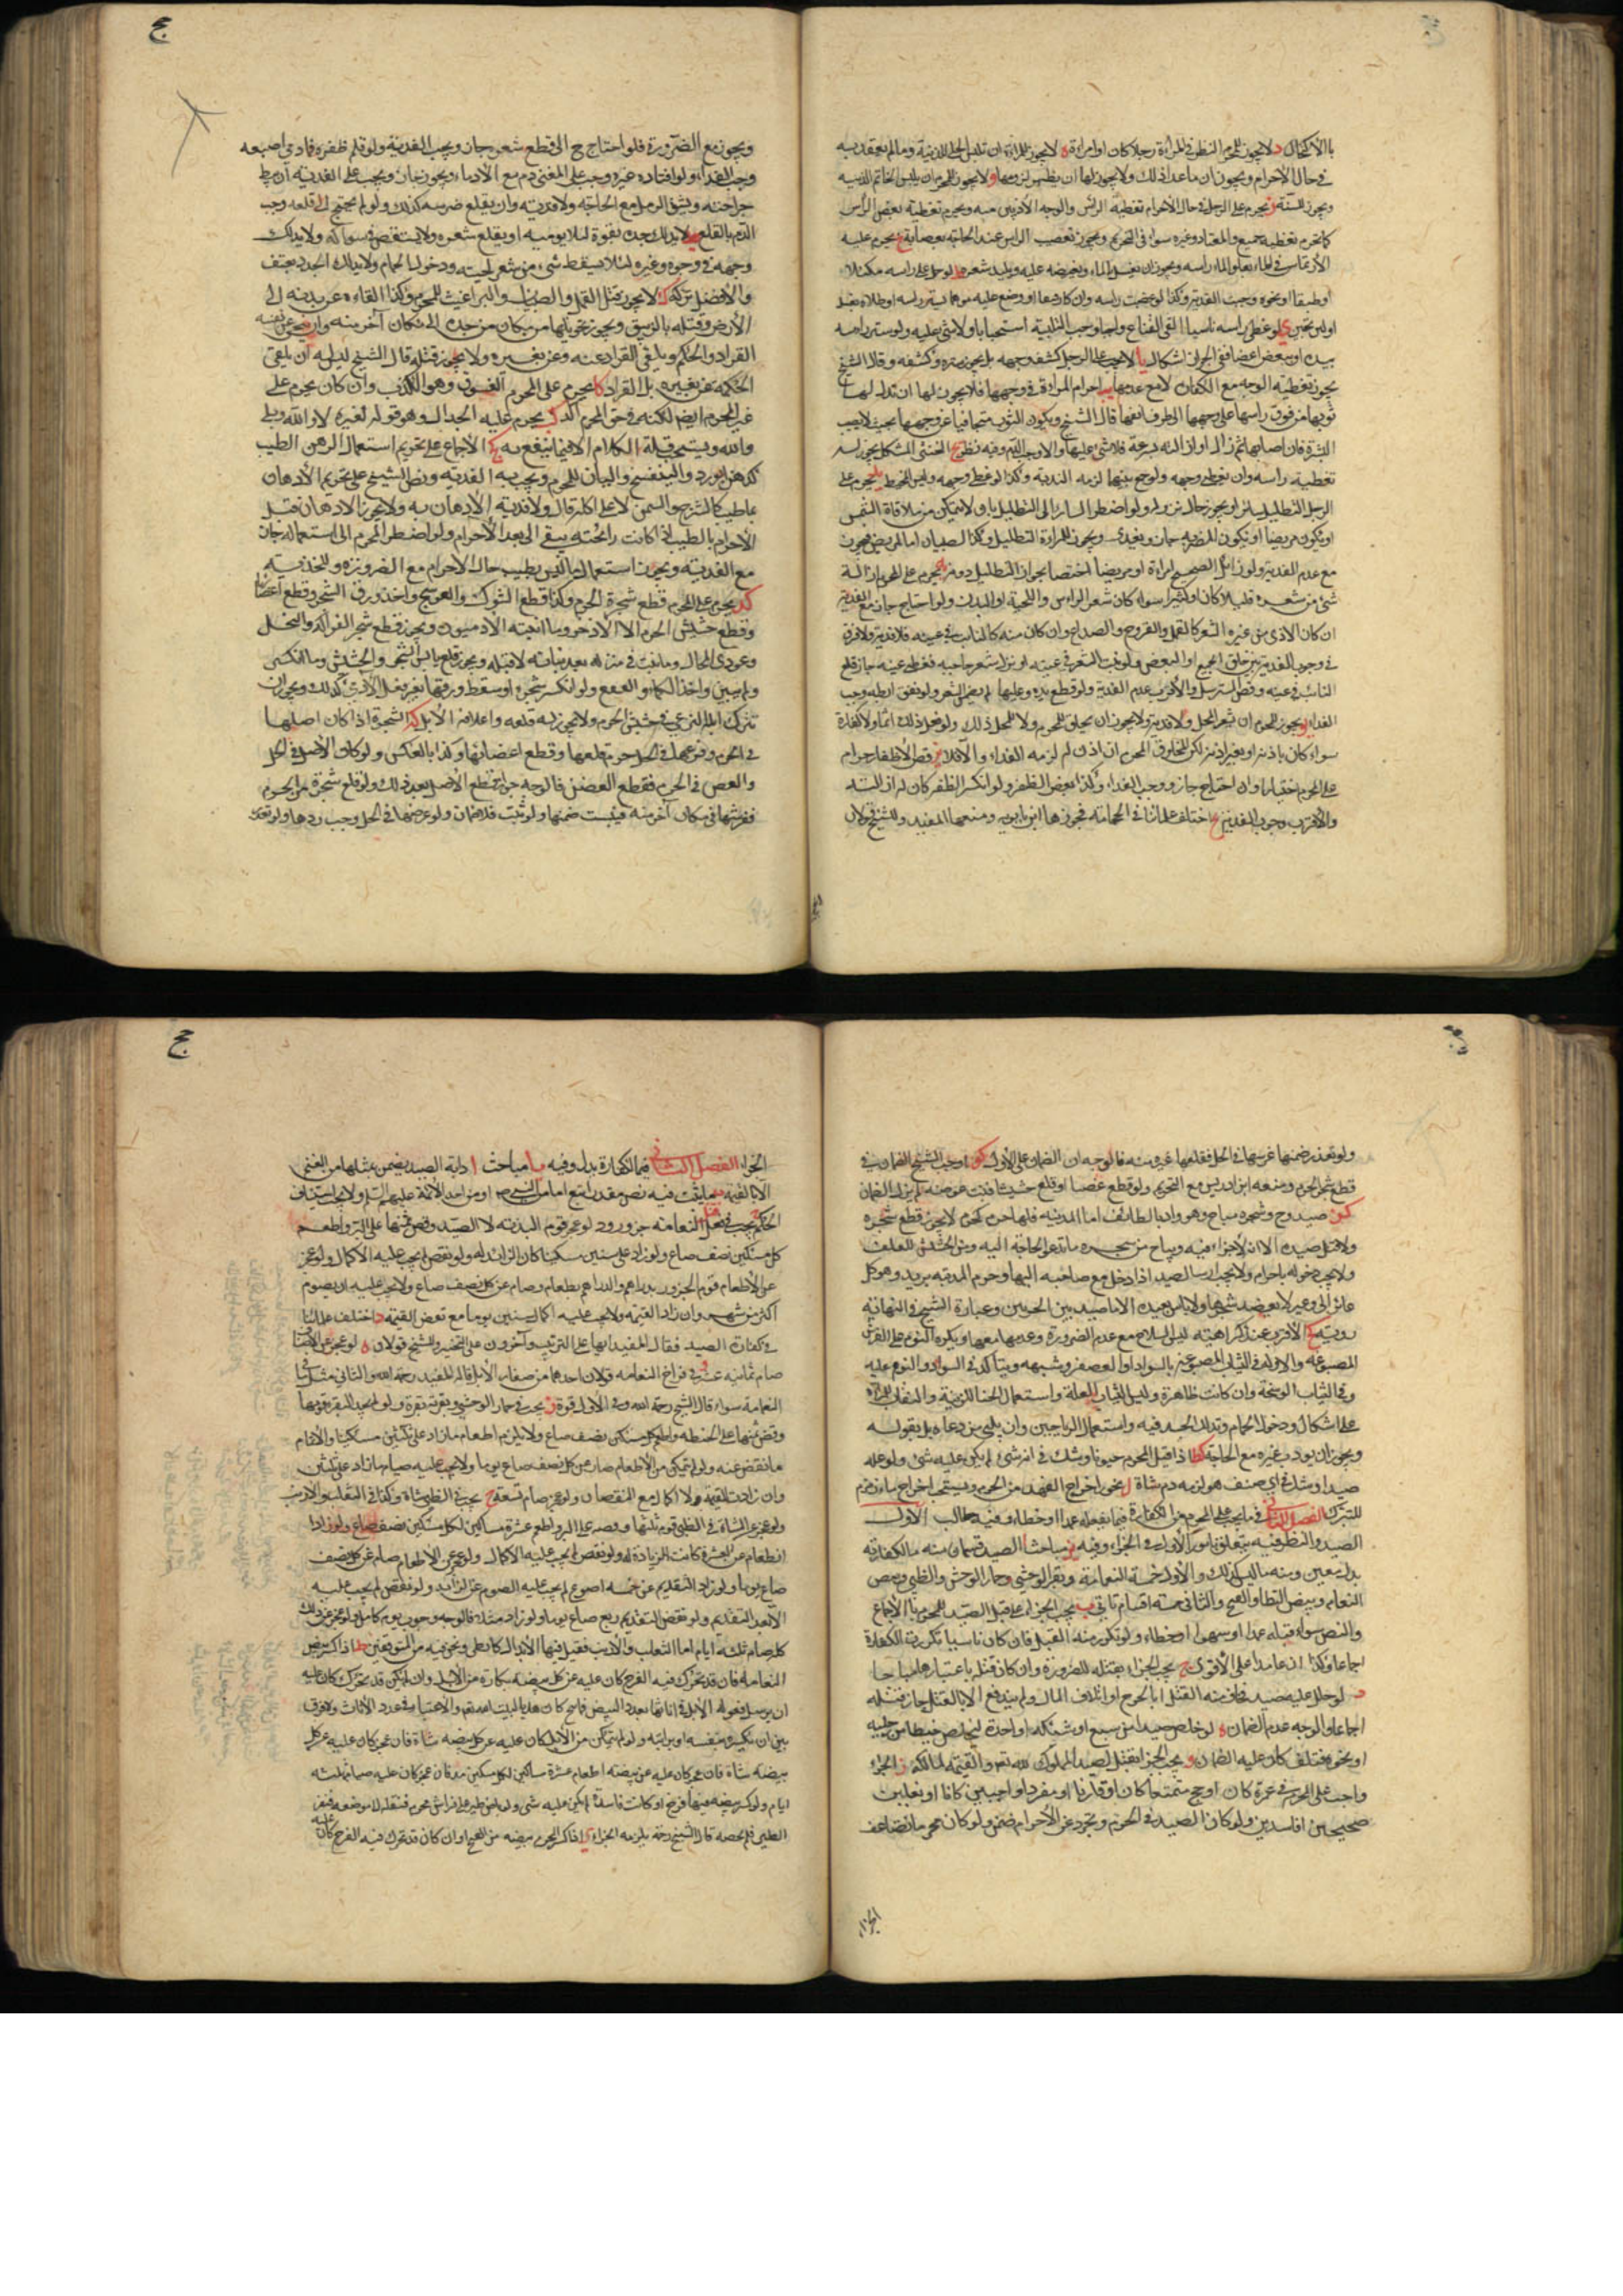 بالاكتحال د لا يجوز للمحرم النظر في المرأة رجلا كان او امرأة ه لا يجوز للمرأة ان تلبس الحلي للزينة وما لم يعتد به
في حال الاحرام ويجوز ان ما عدا ذلك ولا يجوز لها ان يظهر لزوجها و لا يجوز للمحرم ان يلبس الخاتم للزينة
ويجوز للسنة ز يحرم على الرجل في حال الاحرام تغطية الرأس والوجه الأذنين منه ويحرم تغطية بعض الرأس
كما تحرم تغطية جميعه والمعتاد وغيره سواء في التحريم ويجوز تعصيب الراس عند الحاجة بعصابة ح يحرم عليه
الارتماس في الماء بعلو الماء راسه ويجوز ان يغسل الماء ويفيضه عليه ويلبد شعره ط لو حمل على راسه مكتلا
او طبقا او نحوه وجبت الفدية وكذا لو خضب راسه وان كان رقيقا او وضع عليه مرهما يستر راسه او طلاه بعسل
او لبن ثخين ي لو غطى راسه ناسيا القى القناع واجبا وجدد التلبية استحبابا ولا شيء عليه ولو ستر راسه
بيده او ببعض اعضائه ففي الجواز اشكال يا لا يجب على الرجل كشف وجهه بل يجوز ستره وكشفه وقال الشيخ
يجوز تغطية الوجه مع الكفارة لا مع عدمها يب احرام المرأة في وجهها فلا يجوز لها ان تدل لها
ثوبها من فوق راسها على وجهها الى طرف انفها قال الشيخ ويكون الثوب متجافيا عن وجهها بحيث لا يصيب
البشرة فان اصابها ثم زال او ازالته بسرعة فلا شيء عليها والا وجب الدم وفيه نظر يج الخنثى المشكل يجوز له
تغطية راسه وان يغطى وجهه ولو جمع بينهما لزمه الفدية وكذا لو غطى وجهه ولبس المخيط يد يحرم على
الرجل التظليل سائرا ويجوز حال نزوله ولو اضطر السائر الى التظليل بان لا يتمكن من ملاقاة الشمس
او يكون مريضا او يكون المضربه جاز ويفدى ويجوز للمرأة التظليل وكذا الصبيان اما المريض فيجوز
مع عدم الفدية ولو زامل الصحيح امرأة او مريضا اختصا بجواز التظليل دونه يه يحرم على المحرم ازالة
شئ من شعره قليلا كان او كثيرا سواء كان شعر الراس واللحية او البدن ولو احتاج جاز مع الفدية
ان كان الاذى من غيره الشعر كالقمل والقروح والصداع وان كان منه كالنابت في عينه فلا فدية ولا فرق
في وجوب الفدية بين حلق الجميع او البعض ولو نبت الشعر في عينه او نزل شعر حاجبه فغطى عينه جاز قلع
النابت في عينه وقص المسترسل والأقرب عدم الفدية ولو قطع يده وعليها لم يضمن الشعر ولو نتف ابطه وجب
الفداء يو يجوز للمحرم ان شعر المحل ولا فدية ولا يجوز ان يحلق للمحرم ولا للمحل ذلك ولو فعل ذلك اثما ولا كفارة
سواء كان باذنه او بغير اذنه لكن المحلوق المحرم ان اذن له لزمه الفداء والا فلا يز قص الأظفار حرام
على المحرم اختيارا وان احتاج جاز ووجب الفداء وكذا بعض الظفر ولو انكسر الظفر كان له ازالته
والأقرب وجوب الفدية يح اختلف علماؤنا في الحجامة فجوزها ابن بابويه ومنعها المفيد وللشيخ قولان
ويجوز مع الضرورة فلو احتاج ح الى قطع شعر جاز ويجب الفدية ولو قلم ظفره فادمى اصبعه
وجب الفداء ولو افتاه غيره وجب على المفتي دم مع الادماء ويجوز ختان ويجب على الفدية ان يبط
جراحته ويشق الدمل مع الحاجة ولا فدية وان يقلع ضرسه كذلك ولو لم يحتج الى قلعه وجب
الدم بالقلع يط لا يدلك جسده بقوة لئلا يدميه او يقلع شعره ولا يستقصى في سواكه ولا يدلك
وجهه في وضوء وغيره لئلا يسقط شيء من شعر لحيته ودخول الحمام ولا يدلك الجسد بعنف
والأفضل تركه ك لا يجوز قتل القمل والصئبان والبراغيث للمحرم وكذا القاءه عن بدنه الى
الأرض وقتله بالزيبق ويجوز تحويلها من مكان من جسده الى مكان آخر منه وان ينحى عن نفسه
القراد والحلم ويلقى القراد عنه وعن بعيره ولا يجوز قتله قال الشيخ ليس له ان يلقي
الحلمة عن بعيره بل القراد كا يحرم على المحرم الفسوق وهو الكذب وان كان يحرم على
غير المحرم ايضا لكنه في حق المحرم اكد كب يحرم عليه الجدال وهو قوله لغيره لا والله وبلى
والله ويستحب قلة الكلام الا فيما ينفع به كج الاجماع على تحريم استعمال الدهن الطيب
كدهن الورد والبنفسج والبان للمحرم ويجب به الفدية ونص الشيخ على تحريم الأدهان
بما طيب كالشيرج والسمن لا على اكله قال ولا فدية الأدهان به ولا يجوز الادهان قبل
الأحرام بالطيب اذا كانت رائحته يبقى الى بعد الأحرام ولو اضطر المحرم الى استعماله جاز
مع الفدية ويجوز استعمال ما ليس بطيب حال الاحرام مع الضرورة
كد يحرم على المحرم قطع شجرة الحرم وكذا قطع الشوك والعوسج واخذ ورق الشجر وقطع اغصانها
وقطع حشيش الحرم الا الاذخر وما انبته الآدميون ويجوز قطع شجر الفواكه والنخل
وعودي المحال وما نبت في منزله بعد بنيانه لا قبله ويجوز قلع يابس الشجر والحشيش وما انكسر
ولم يبن واخذ الكماة والفقع ولو انكسر شجرة او سقط ورقها بغير فعل الآدمي كذلك ويجوز ان
تترك ابله لترعى في حشيش الحرم ولا يجوز له قلعه واعلاف الابل كه الشجرة اذا كان اصلها
في الحرم وفرعها في الحل حرم قلعها وقطع اغصانها وكذا بالعكس ولو كان الأصل في الحل
والغصن في الحرم فقطع الغصن فالوجه جواز قطع الأصل بعد ذلك ولو قلع شجرة من الحرم
فغرسها في مكان آخر منه فيبست ضمنها ولو نبت فلا ضمان ولو غرسها في الحل وجب ردها ولو تعذر
ولو تعذر ضمنها غرسها في الحل فقلعها غيره منه فالوجه ان الضمان على الأول كو اوجب الشيخ الضمان في
قطع شجر الحرم ومنعه ابن ادريس مع التحريم ولو قطع غصنا او قلع حشيشا فنبت عوضه لم يزل الضمان
كز صيد وج وشجره مباح وهو واد بالطائف اما المدينة فلها حرم كحرم لا يجوز قطع شجره
ولا قتل صيده الا انه لا جزاء فيه ويباح من شجره ما تدعو الحاجة اليه ومن الحشيش للعلف
ولا يجب دخوله باحرام ولا يجب ارسال الصيد اذا دخل مع صاحبه اليها وحرم المدينة بريد وهو كل
عائر الى وعير لا يعضد شجرها ولا بأس بصيده الا ما صيد بين الحرتين وعبارة الشيخ في النهاية
ردية كح الأقرب عندي كراهية لبس السلاح مع عدم الضرورة وعدمها معها ويكره النوم على الفرش
المصبوغة والاولى الثياب المصبوغة بالسواد او العصفر وشبهه ويتأكد في السواد والنوم عليه
وفي الثياب الوسخة وان كانت طاهرة ولبس الثياب المعلمة واستعمال الحنا للزينة والنقاب للمرأة
على اشكال ودخول الحمام وتدليك الجسد فيه واستعمال الرياحين وان يلبى من دعاه بل يقول
ويجوز ان يودب غيره مع الحاجة كط اذا قتل المحرم حيوانا وشك في انه شيء لم يكن عليه شيء ولو علم
صيدا وشك في اي صنف هو لزمه دم شاة ل يجوز اخراج الفهد من الحرم ويستحب اخراج ماء زمزم
للتبرك الفصل الثاني في ما يجب على المحرم من الكفارة فيما يفعله عمدا او خطاء وفيه مطالب الأول
الصيد والنظر فيه يتعلق بامور الأول في الجزاء وفيه يز مباحث ا الصيد قسمان منه ما لكفارته
بدل معين ومنه ما ليس كذلك والأول خمسة النعامة وبقر الوحشي وحمار الوحش والظبي وبيض
النعام وبيض القطا والقبج والثاني خمسة اقسام تأتي ب يجب الجزاء على قتل الصيد للمحرم بالاجماع
والنص سواء قتله عمدا او سهوا او خطاء ولو تكرر منه القتل فان كان ناسيا تكررت الكفارة
اجماعا وكذا ان عامدا على الأقوى ج يجب الجزاء بقتله للضرورة وان كان قتله باعتبارها مباحا
د لو حمل عليه صيد فخاف منه القتل او الجرح او اتلاف المال ولم يندفع الا بالقتل جاز قتله
اجماعا والوجه عدم الضمان ه لو خلص صيدا من سبع او شبكة او اخذه ليخلص خيطا من رجليه
او نحوه فتلف كان عليه الضمان و يجب الجزاء بقتل الصيد المملوك لله تعالى والقيمة لمالكه ز الجزاء
واجب على المحرم في عمرة كان او حج متمتعا كان او قارنا او مفردا واجبين كانا او نفلين
صحيحين او فاسدين ولو كان الصيد في الحرم وتجرد عن الأحرام ضمن ولو كان محرما تضاعف
الجزاء
الجزاء الفصل الثاني فيما لكفارة بدل وفيه يا مباحث ا دابة الصيد يضمن بمثلها من النعم
الا بالقيمة ب ما يثبت فيه نص مقدر اتبع اما من النبي ص او من احد الأئمة عليهم السلم ولا يجب استيناف
الحكم ج يجب في قتل النعامة جزور ود لو عجز قوم البدنة لا الصيد وفض ثمنها على البر واطعم
كل مسكين نصف صاع ولو زاد على ستين مسكينا كان الزائد له ولو نقص لم يجب عليه الاكمال ولو عجز
عن الأطعام قوم الجزور بدراهم والدراهم بطعام وصام عن كل نصف صاع ولا يجب عليه ان يصوم
اكثر من شهرين وان زاد القيمة ولا يجب عليه اكمال ستين يوما مع نقص القيمة د اختلف علماؤنا
في كفارة الصيد فقال المفيد انها على الترتيب وآخرون على التخيير وللشيخ قولان ه لو عجز عن الأصناف
صام ثمانية عشر و في فراخ النعامة قولان احدهما من صغار الأبل قاله المفيد رحمه الله والثاني مثل ما في
النعامة سواء قال الشيخ رحمة الله وفي الأول قوة ز يجب في حمار الوحشي وبقرته بقرة ولو لم يجد البقرة قومها
وفض ثمنها على الحنطة واطعم كل مسكين نصف صاع ولا يلزمه اطعام ما زاد على ثلثين مسكينا ولا اتمام
ما نقص عنه ولو لم يتمكن من الأطعام صام عن كل نصف صاع يوما ولا يجب عليه صيام ما زاد على ثلثين
وان زادت القيمة ولا اكمال مع النقصان ولو عجز صام تسعة ح يجب في الظبي شاة وكذا في الثعلب والأرنب
ولو عجز عن الشاة في الظبي قوم ثمنها وفضه على البر واطعم عشرة مساكين لكل مسكين نصف صاع ولو زاد
الطعام عن العشرة كانت الزيادة له ولو نقص لم يجب عليه الاكمال ولو عجز عن الاطعام صام عن كل نصف
صاع يوما ولو زاد التقديم عن خمسة اصوع لم يجب عليه الصوم عن الزائد ولو نقص لم يجب عليه
الا بعد التقديم ولو نقص التقديم ربع صاع يوما ولو زاد مثله فالوجه وجوب يوم كامل ولو عجز عن ذلك
كله صام ثلثة ايام اما الثعلب والأرنب فقيل فيها الأبدال كالظبي ونحن فيه من المتوقفين ط اذا كسر بيض
النعامة فان قد تحرك فيه الفرخ كان عليه عن كل بيضة بكارة من الأبل وان لم يكن قد تحرك كان عليه
ان يرسل فحولة الأبل في اناثها بعدد البيض فالناتج كان هديا لبيت الله تعالى والاعتبار في عدد الأناث ولا فرق
بين ان يكسره بنفسه او بدابته ولو لم يتمكن من الأبل كان عليه عن كل بيضة شاة فان عجز كان عليه عن كل
بيضة شاة فان عجز كان عليه عن بيضة اطعام عشرة مساكين لكل مسكين مد فان عجز كان عليه صيام ثلثة
ايام ولو كسر بيضة فيها فرخ او كانت فاسدة لم يكن عليه شيء ولو باض طير على فراش محرم فنقله الى موضعه فنفر
الطير فلم يحضنه قال الشيخ رحمه يلزمه الجزاء ي اذا كسر المحرم بيضة من القبج او ان كان قد تحرك فيه الفرخ كان عليه